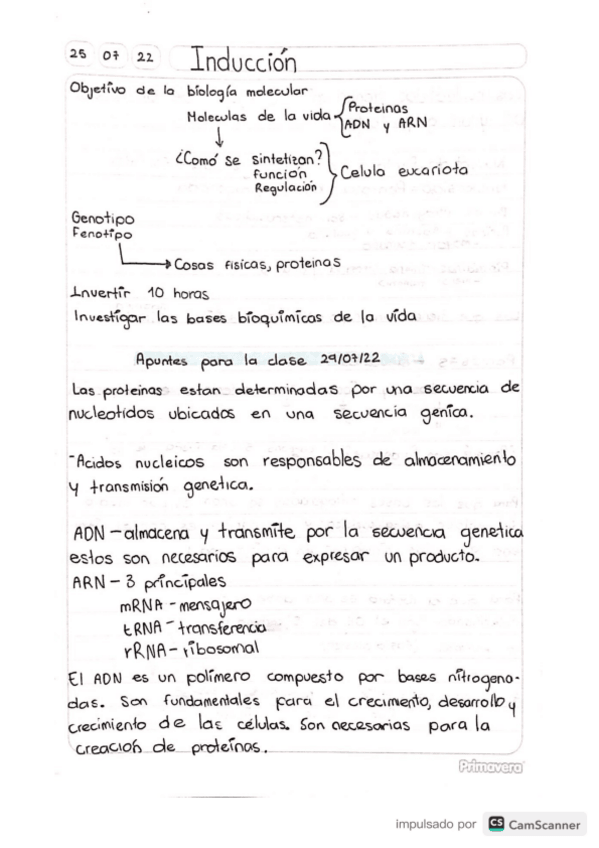 25 07 22 Inducción
Objetivo de la biología molecular
Moleculas de la vida
Proteinas
ADN y ARN
¿Comó se sintetizan?
función
Regulación
Celula eucariota
Genotipo
Fenotipo
Cosas fisicas, proteinas
Invertir 10 horas
Investigar las bases bioquimicas de la vida
Apuntes para la clase 29/07/22
Las proteinas estan determinadas por una secuencia de
nucleotidos ubicados en una secuencia genica.
-Acidos nucleicos son responsables de almacenamiento
y transmisión genetica.
ADN - almacena y transmite por la secuencia genetica
estos son necesarios para expresar un producto.
ARN - 3 principales
mRNA - mensajero
tRNA - transferencia
rRNA - ribosomal
El ADN es un polímero compuesto por bases nitrogena-
das. Son fundamentales para el crecimento, desarrollo y
crecimiento de las células. Son necesarias para la
creación de proteinas.
Primavera
impulsado por CS CamScanner